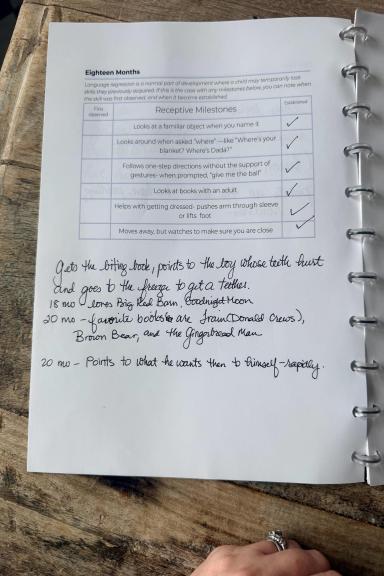 Eighteen Months
Language regression is a normal part of development where a child may temporarily lose
skills they previously acquired. If this is the case with any milestones below, you can note when
the skill was first observed, and when it became established.
First
observed
Receptive Milestones
Established
Looks at a familiar object when you name it ✓
Looks around when asked "where" —like "Where's your
blanket? Where's Dada?" ✓
Follows one-step directions without the support of
gestures- when prompted, "give me the ball" ✓
Looks at books with an adult ✓
Helps with getting dressed- pushes arm through sleeve
or lifts foot ✓
Moves away, but watches to make sure you are close ✓
Gets the biting book, points to the boy whose teeth hurt
and goes to the freezer to get a teether.
18 mo loves Big Red Barn, Goodnight Moon
20 mo - favorite books are Train (Donald Crews),
Brown Bear, and the Gingerbread Man
20 mo - Points to what he wants then to himself - rapidly.